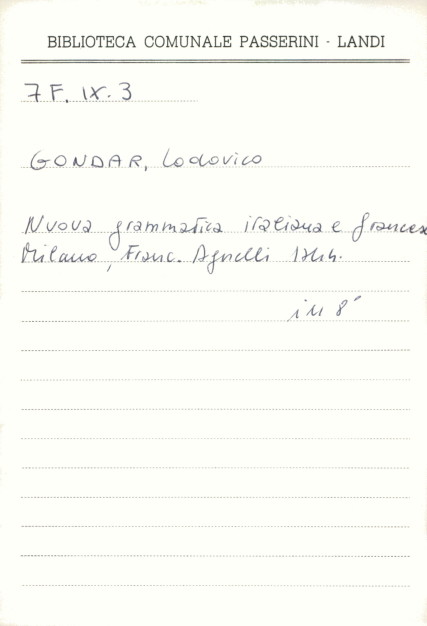 BIBLIOTECA COMUNALE PASSERINI - LANDI
7 F. IX. 3
GONDAR, Lodovico
Nuova grammatica italiana e frances
Milano, Franc. Agnelli
in 8°